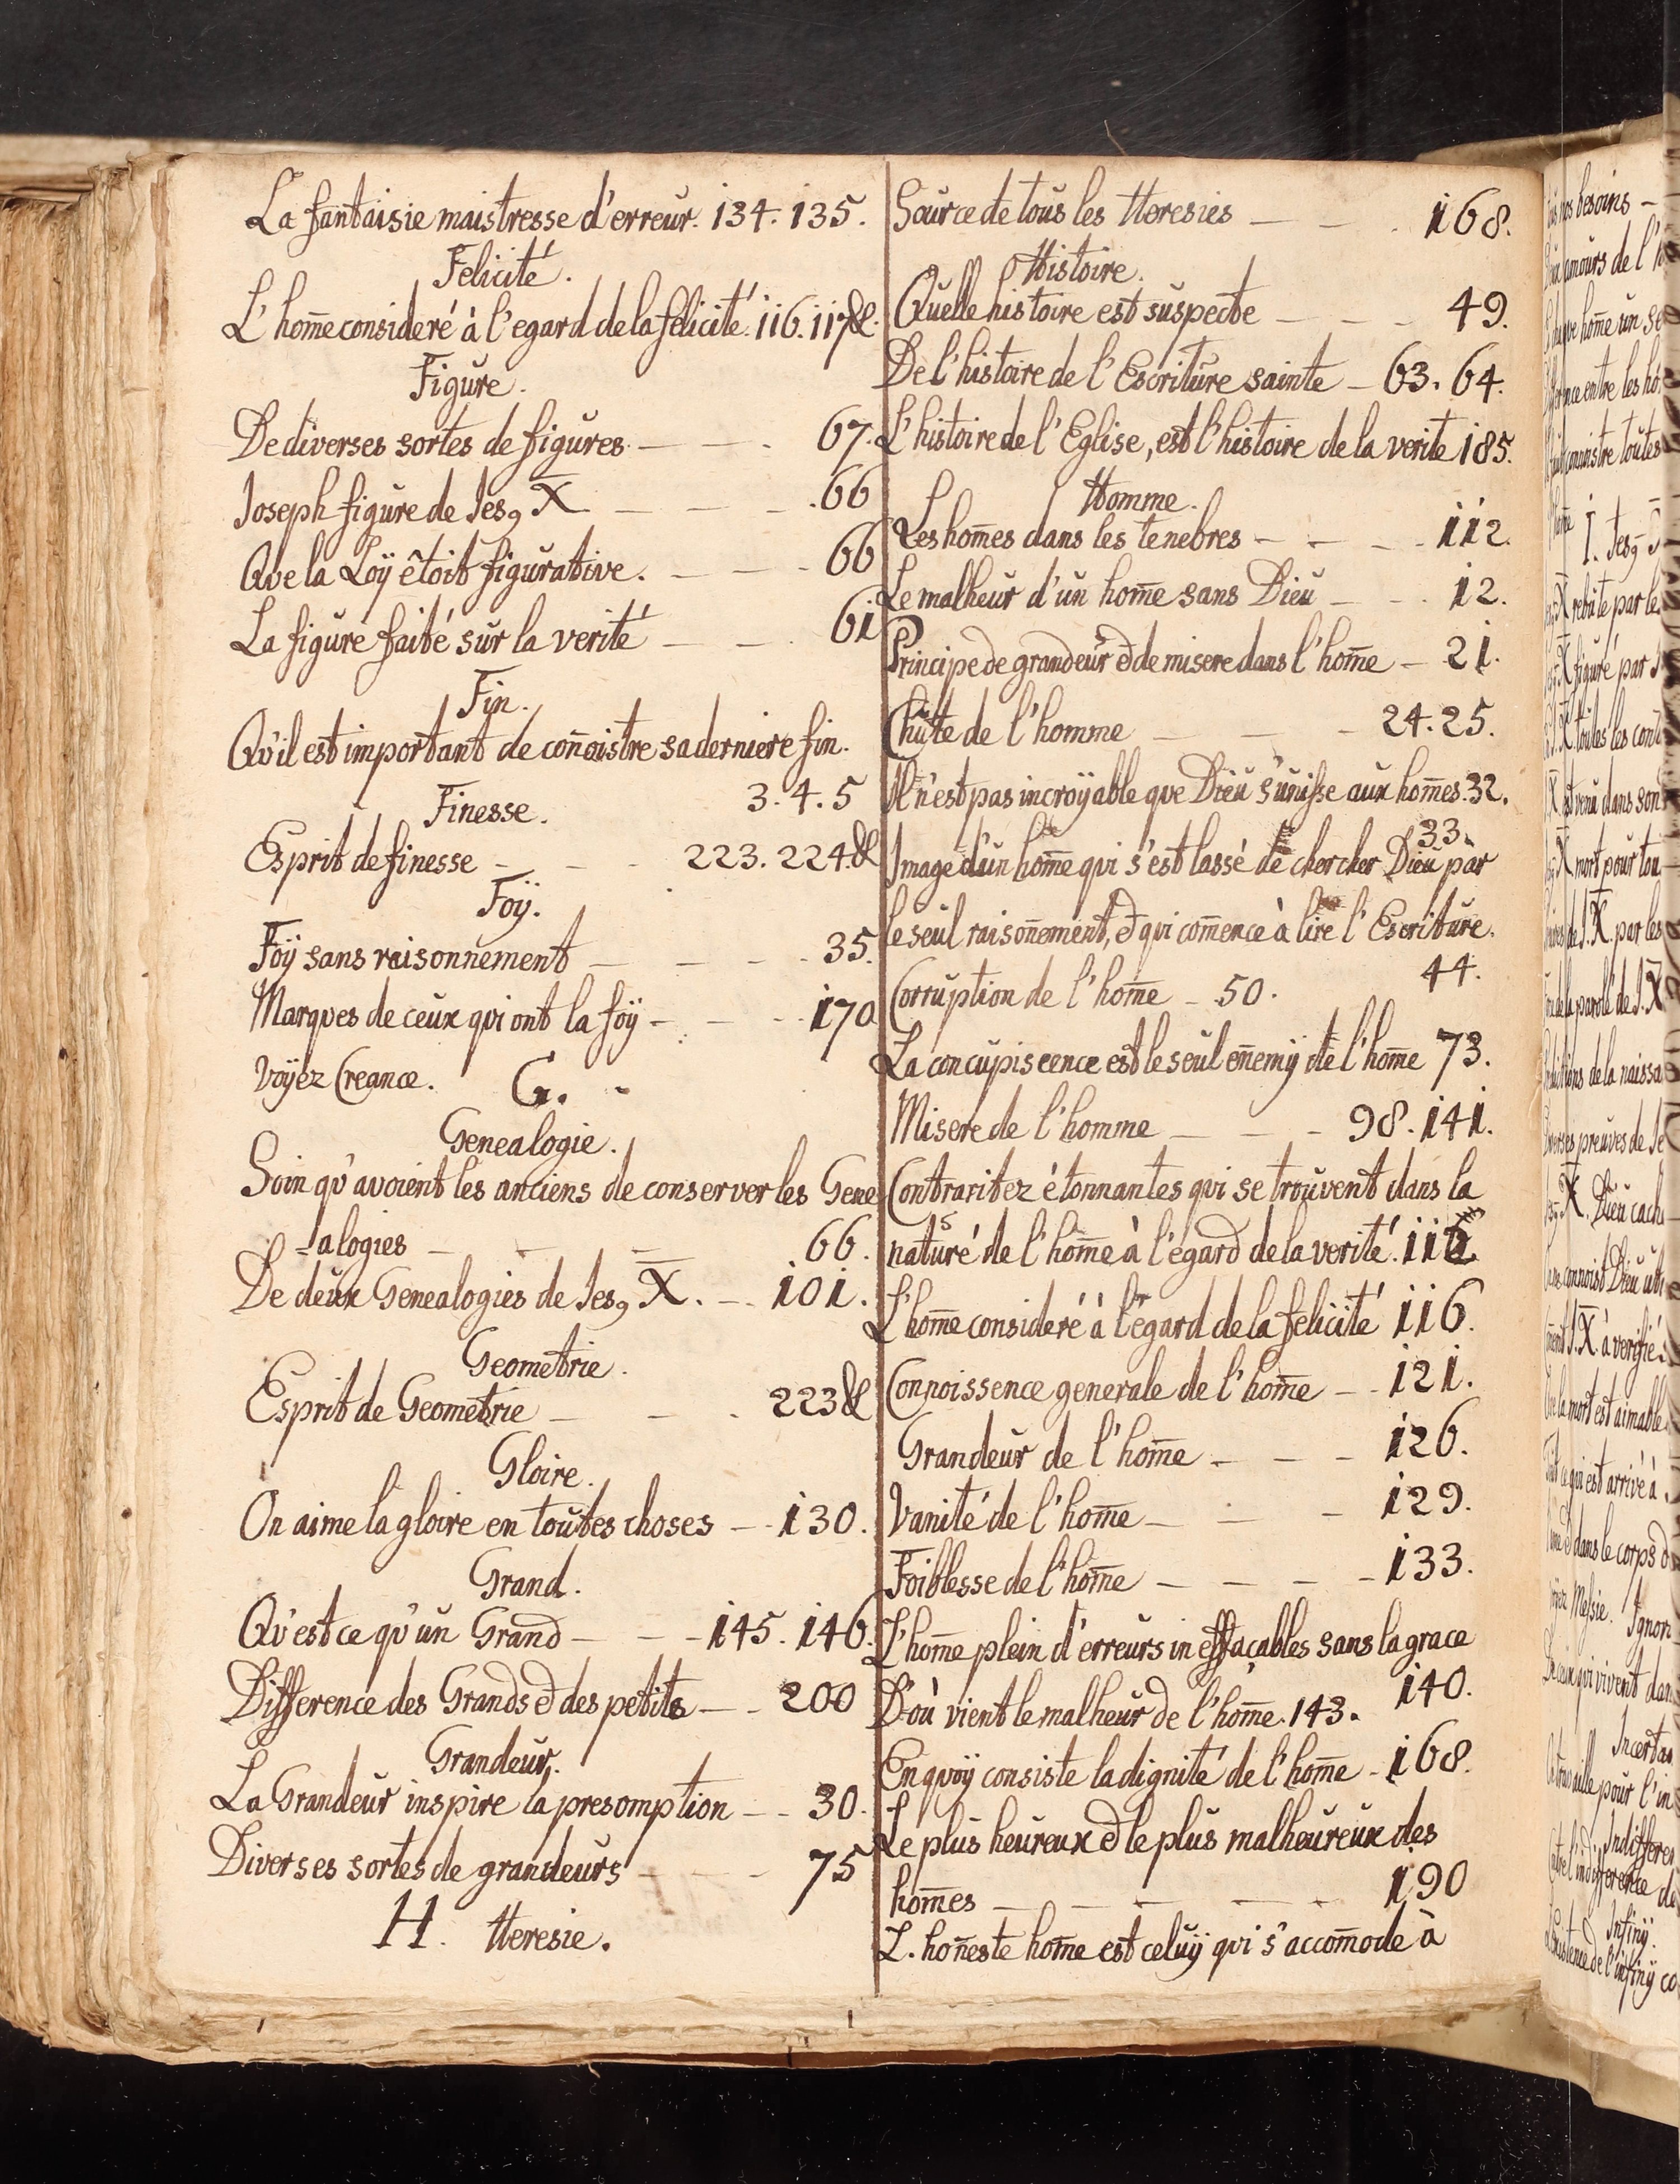 La fantaisie maistresse d'erreur. 134. 135.
Felicité.
L'home consideré à l'egard de la felicité. 116. 117 &.
Figure.
De diverses sortes de figures — — . 67.
Joseph figure de Jes9 X — — — . 66
Que la Loÿ êtoit figurative. — — - 66
La figure faité sur la verité — — . 61
Fin.
Qu'il est important de conoistre sa derniere fin.
3. 4. 5
Finesse.
Esprit de finesse — — - 223. 224. &
Foÿ.
Foÿ sans raisonnement — — - - 35.
Marques de ceux qui ont la foÿ - — - - 170
Voÿez Creance.
G. -
Genealogie.
Soin qu'avoient les anciens de conserver les Gene
=alogies — - — 66.
De deux Genealogies de Jes9 X. — . 101.
Geometrie.
Esprit de Geometrie — — . 223 &
Gloire.
On aime la gloire en toutes choses — - 130.
Grand.
Qu'est ce qu'un Grand — — - 145. 146.
Difference des Grands & des petits — - 200
Grandeur.
La Grandeur inspire la presomption — - 30.
Diverses sortes de grandeurs — — - 75
H. Heresie.
Source de tous les Heresies — — . 168.
Histoire.
Quelle histoire est suspecte — — - 49.
De l'histoire de l'Escriture sainte — 63. 64.
L'histoire de l'Eglise, est l'histoire de la verite 185.
Homme.
Les homes dans les tenebres — - — - 112.
Le malheur d'un home sans Dieu — - . 12.
Principe de grandeur & de misere dans l'home — 21.
Chute de l'homme — — - 24. 25.
Il n'est pas incroÿable que Dieu s'unisse aux homes. 32.
33.
Image d'un home qui s'est lassé de chercher Dieu par
le seul raisonement, & qui comence à lire l'Escriture.
44.
Corruption de l'home — 50.
La concupiscence est le seul enemÿ de l'home 73.
Misere de l'homme — — - 98. 141.
Contraritez étonnantes qui se trouvent dans la
naturé de l'home à l'égard de la verité.
L'home consideré à l'égard de la felicité 116.
Connoissence generale de l'home — - 121.
Grandeur de l'home - — - 126.
Vanité de l'home — - - 129.
Foiblesse de l'home — — - - 133.
L'home plein d'erreurs in effaçables sans la grace
140.
D'où vient le malheur de l'home. 143.
En quoÿ consiste la dignité de l'home - 168.
Le plus heureux & le plus malheureux des
homes — — — - 190
L. honeste home est celuÿ qui s'accomode à
besoins —
amours de l'
home un
entre les
toutes
I. Jes9
par le
figuré par
toutes les
venu dans son
mort pour tou
par les
parole de J. X
de la naissa
preuves de Je
X. Dieu cach
connoist Dieu
J. X à verifié
la mort est aimable
qui est arrivé à
dans le corps
Messie. Ignor
qui vivent dan
Incertai
pour l'in
Indifferen
l'indifference de
Infinÿ.
de l'infinÿ co